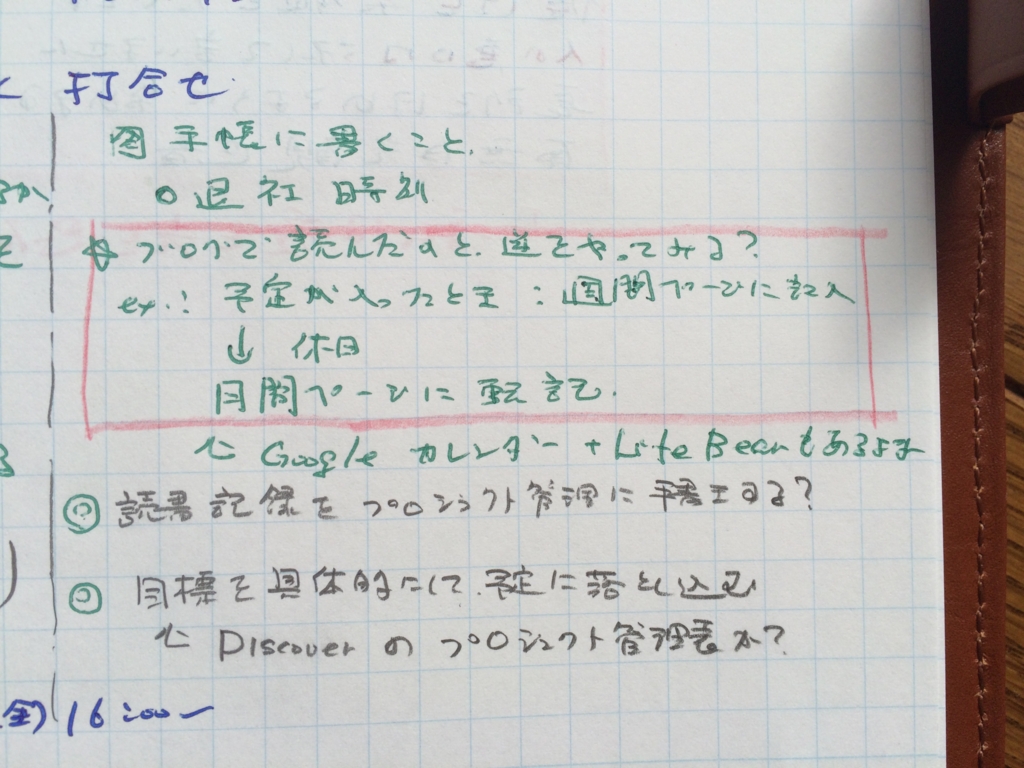 打合せ
手帳に書くこと.
○退社時刻
ブログで読んだのと.逆をやってみる?
ex.: 予定が入ったとき : 週間ページに記入
↓ 休日
月間ページに転記.
Google カレンダー + Life Bearもあるよな
◎ 読書記録をプロジェクト管理に手書きする?
◎ 目標を具体的にして.予定に落とし込む
Discover の プロジェクト管理表か?
(金) 16:00〜